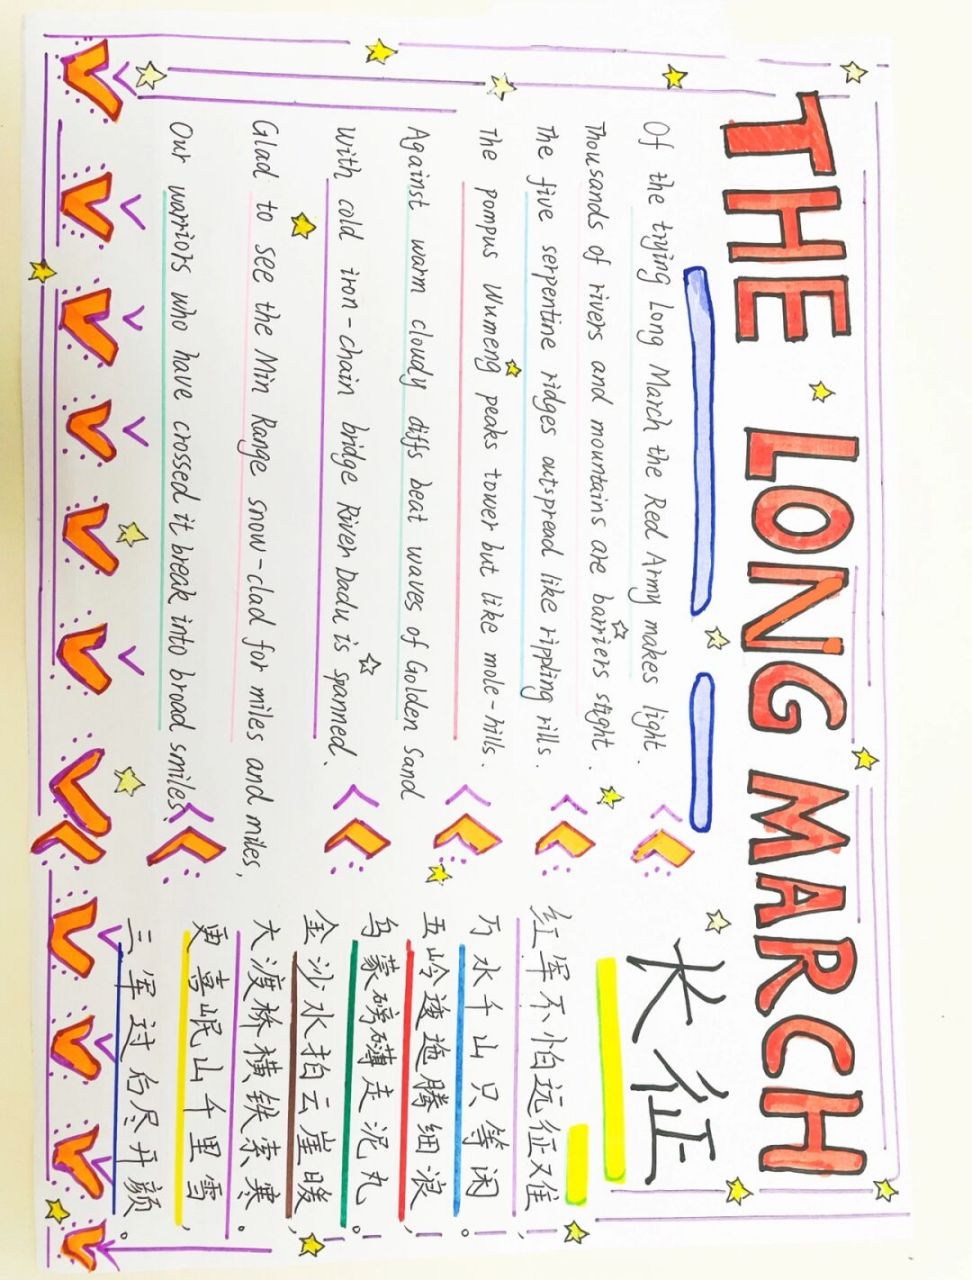 THE LONG MARCH
Of the trying Long March the Red Army makes light.
Thousands of rivers and mountains are barriers slight.
The five serpentine ridges outspread like rippling rills.
The pompus Wumeng peaks tower but like mole-hills.
Against warm cloudy diffs beat waves of Golden Sand
With cold iron-chain bridge River Dadu is spanned.
Glad to see the Min Range snow-clad for miles and miles,
Our warriors who have crossed it break into broad smiles.
长征
红军不怕远征难,
万水千山只等闲。
五岭逶迤腾细浪,
乌蒙磅礴走泥丸。
金沙水拍云崖暖,
大渡桥横铁索寒。
更喜岷山千里雪,
三军过后尽开颜。